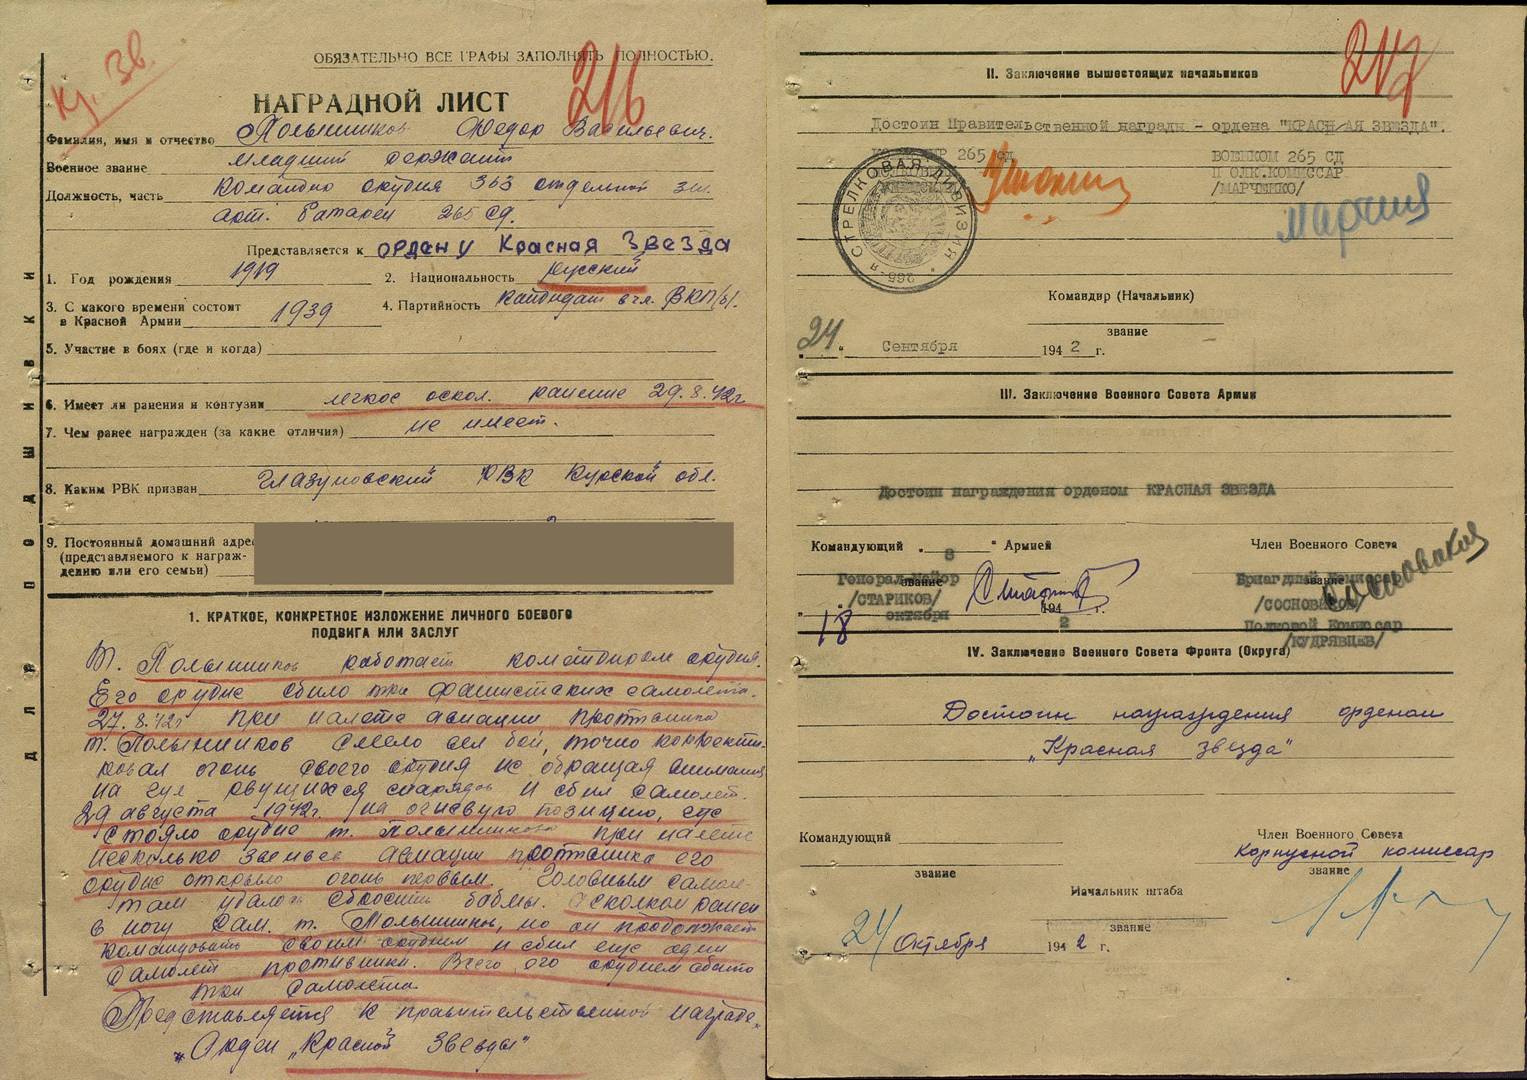 Кр. Зв.
ОБЯЗАТЕЛЬНО ВСЕ ГРАФЫ ЗАПОЛНЯТЬ ПОЛНОСТЬЮ.
216
НАГРАДНОЙ ЛИСТ
Фамилия, имя и отчество Полынников Федор Васильевич.
Военное звание младший сержант
Должность, часть командир орудия 363 отдельной зен.
арт. батареи 265 сд.
Представляется к ордену Красная Звезда
1. Год рождения 1919 2. Национальность русский
3. С какого времени состоит в Красной Армии 1939 4. Партийность кандидат в чл. ВКП/б/.
5. Участие в боях (где и когда)
6. Имеет ли ранения и контузии легкое оскол. ранение 29.8.42г
7. Чем ранее награжден (за какие отличия) не имеет.
8. Каким РВК призван Глазуновский РВК Курской обл.
9. Постоянный домашний адрес
(представляемого к награж-
дению или его семьи)
ДЛЯ ПОДШИВКИ
1. КРАТКОЕ, КОНКРЕТНОЕ ИЗЛОЖЕНИЕ ЛИЧНОГО БОЕВОГО
ПОДВИГА ИЛИ ЗАСЛУГ
Т. Полынников работает командиром орудия.
Его орудие сбило три фашистских самолета.
27.8.42г при налете авиации противника
т. Полынников смело вел бой, точно корректи-
ровал огонь своего орудия не обращая внимания
на гул рвущихся снарядов и сбил самолет.
29 августа 1942г. на огневую позицию, где
стояло орудие т. Полынникова при налете
несколько звеньев авиации противника его
орудие открыло огонь первым. Головным самоле-
там удалось сбросить бомбы. Осколком ранен
в ногу сам. т. Полынников, но он продолжает
командовать своим орудием и сбил еще один
самолет противника. Всего его орудием сбито
три самолета.
Представляется к правительственной награде
„Орден „Красной Звезды"
217
II. Заключение вышестоящих начальников
Достоин Правительственной награды - ордена "КРАСНАЯ ЗВЕЗДА".
265 СД ВОЕНКОМ 265 СД
ПОЛК.КОМИССАР
/МАРЧЕНКО/
СТРЕЛКОВАЯ ДИВИЗИЯ 265-я
Командир (Начальник)
звание
„24" Сентября 1942 г.
III. Заключение Военного Совета Армии
Достоин награждения орденом КРАСНАЯ ЗВЕЗДА
Командующий „8" Армией Член Военного Совета
Генерал-Майор звание Бригадный Комиссар звание
/СТАРИКОВ/ /СОСНОВИКОВ/
„18" октября 1942 г. Полковой Комиссар
/КУДРЯВЦЕВ/
IV. Заключение Военного Совета Фронта (Округа)
Достоин награждения орденом
„Красная звезда"
Командующий Член Военного Совета
Корпусной комиссар
звание звание
Начальник штаба
звание
24 Октября 1942 г.